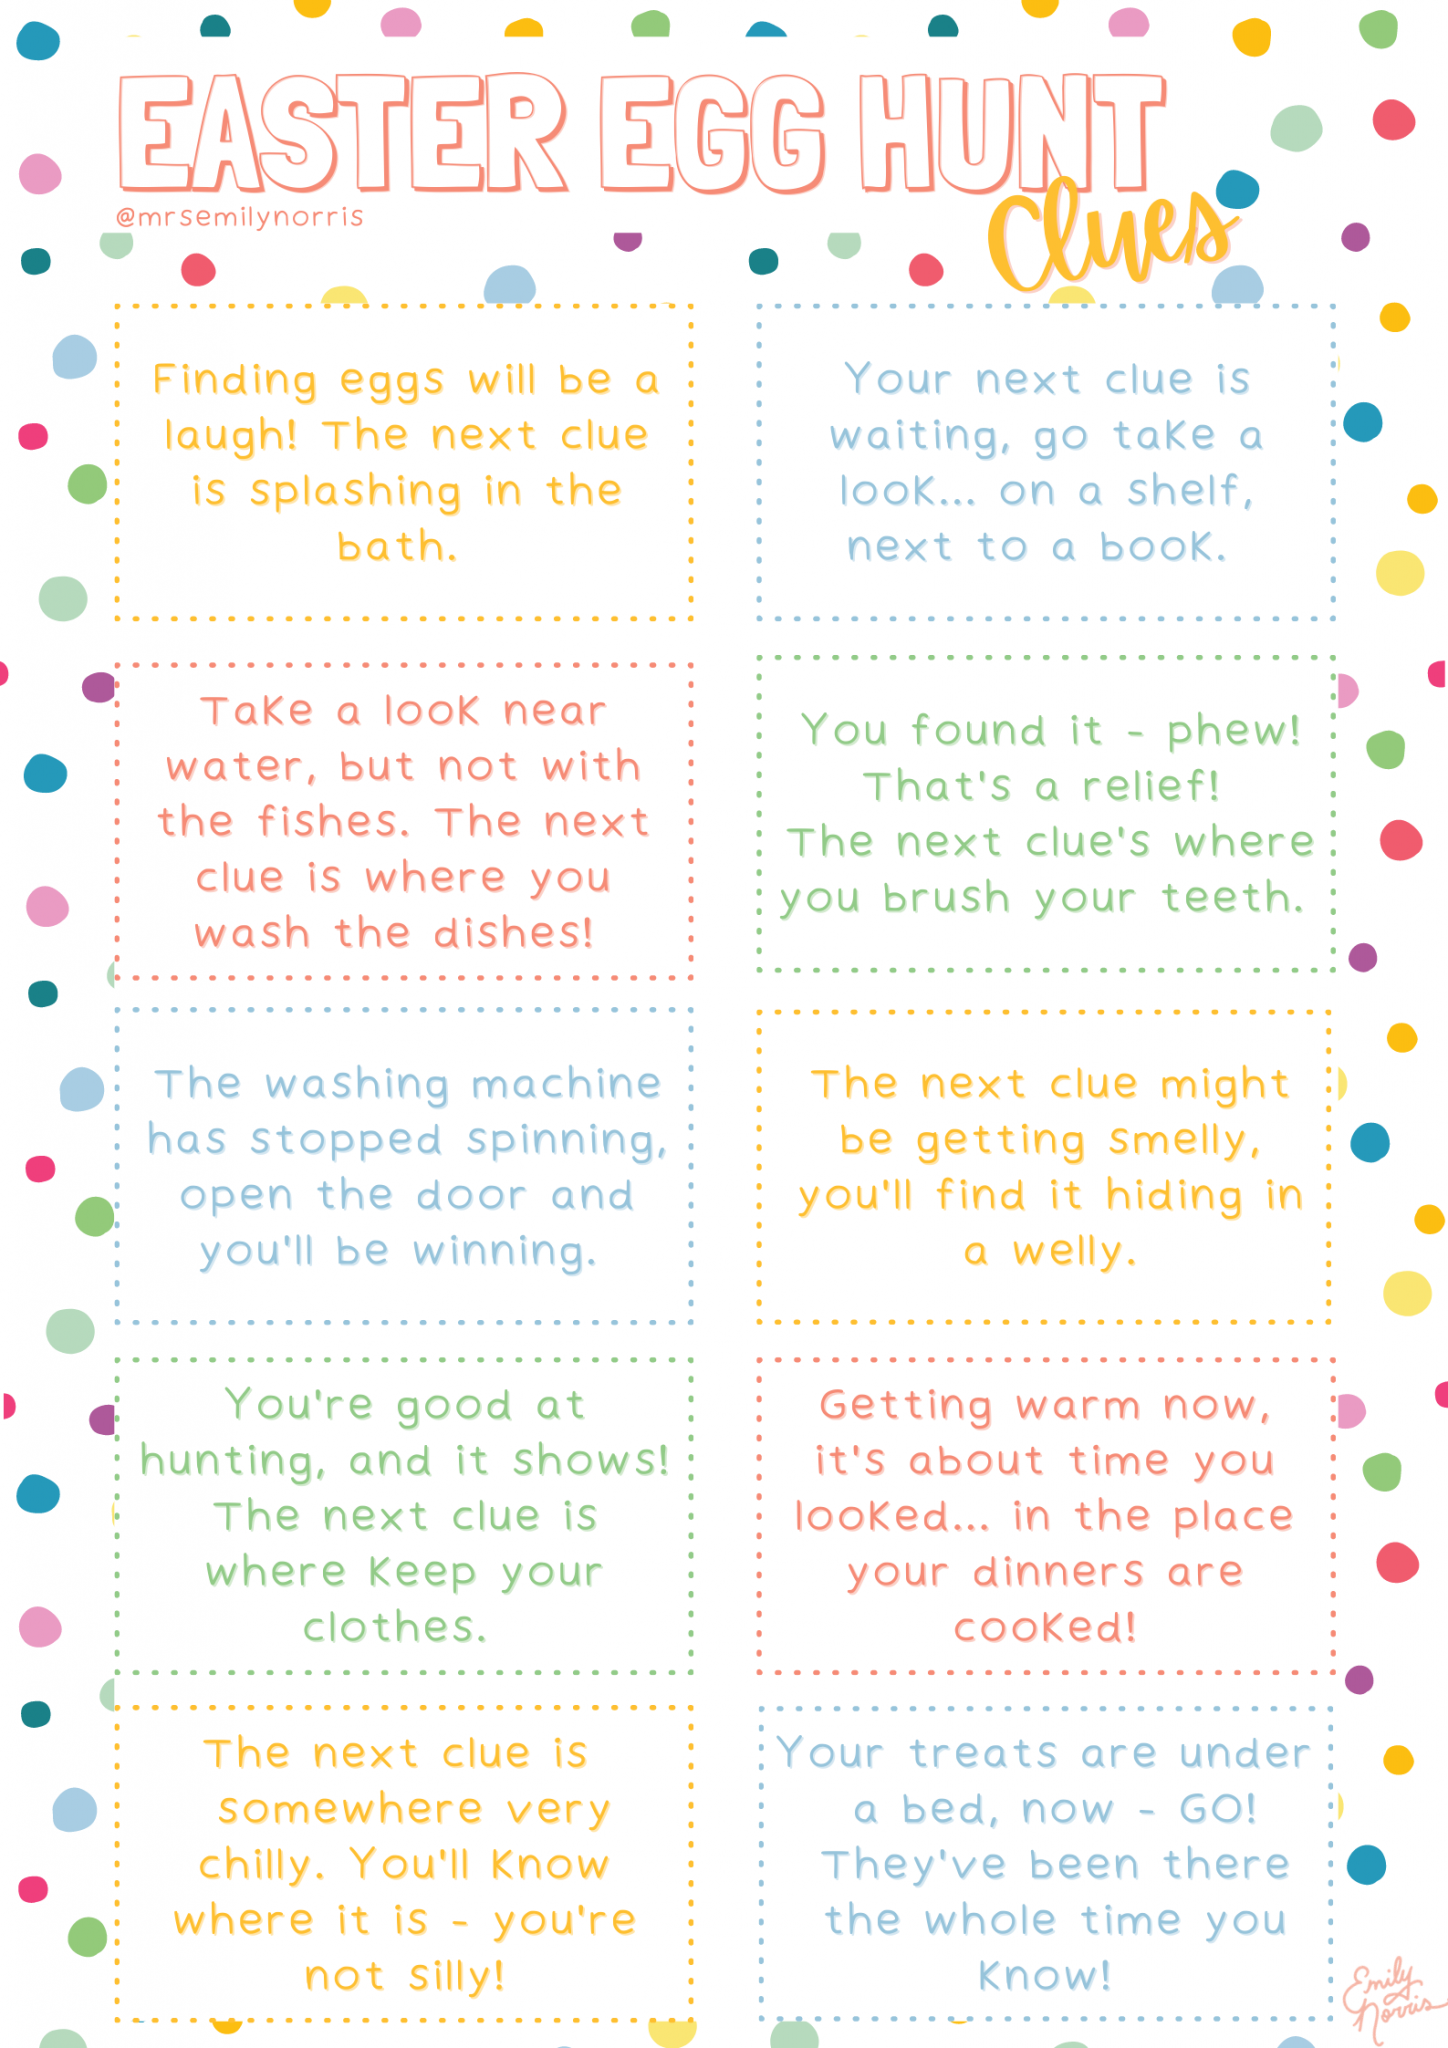 EASTER EGG HUNT
Clues
@mrsemilynorris
Finding eggs will be a
laugh! The next clue
is splashing in the
bath.
Your next clue is
waiting, go take a
look... on a shelf,
next to a book.
Take a look near
water, but not with
the fishes. The next
clue is where you
wash the dishes!
You found it - phew!
That's a relief!
The next clue's where
you brush your teeth.
The washing machine
has stopped spinning,
open the door and
you'll be winning.
The next clue might
be getting smelly,
you'll find it hiding in
a welly.
You're good at
hunting, and it shows!
The next clue is
where keep your
clothes.
Getting warm now,
it's about time you
looked... in the place
your dinners are
cooked!
The next clue is
somewhere very
chilly. You'll know
where it is - you're
not silly!
Your treats are under
a bed, now - GO!
They've been there
the whole time you
know!
Emily
Norris